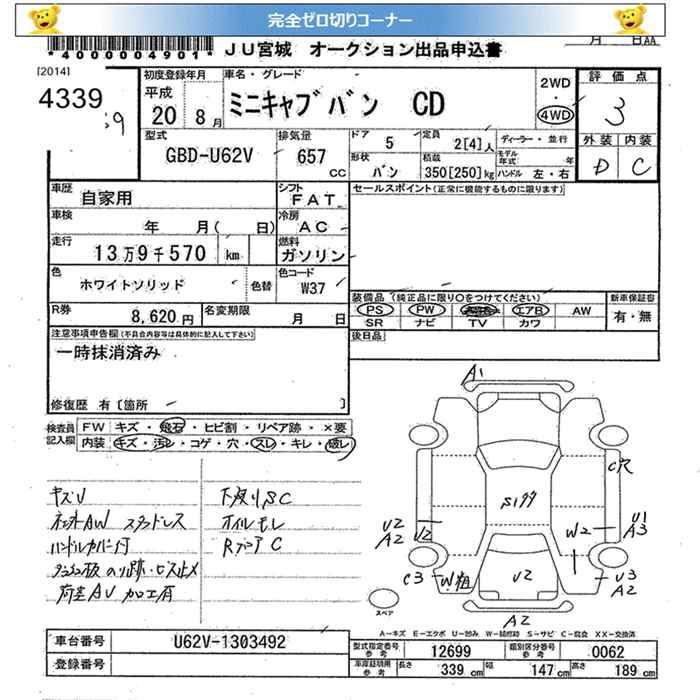 完全ゼロ切りコーナー
*4000004901*
JU宮城 オークション出品申込書
月 日AA
[2014]
4339
初度登録年月
平成
20 8月
車名・グレード
ミニキャブバン CD
2WD
・
4WD
評価点
3
外装 内装
D C
型式
GBD-U62V
排気量
657
cc
ドア 5
定員 2[4]人
形状 バン
積載 350[250]kg
ディーラー・並行
モデル年式 年
ハンドル 左・右
車歴 自家用
シフト FAT
車検 年 月( 日)
冷房 AC
走行 13万9千570 km
燃料 ガソリン
色 ホワイトソリッド 色替
色コード W37
R券 8,620円
名変期限 月 日
セールスポイント(正常に機能するものに限ります)
装備品(純正品に限り○をつけてください)
PS PW エアB AW
SR ナビ TV カワ
新車保証書
有・無
後日品
注意事項申告欄(不具合内容等は具体的に記入して下さい)
一時抹消済み
修復歴 有〔箇所
検査員記入欄
FW キズ・飛石・ヒビ割・リペア跡・×要
内装 キズ・汚レ・コゲ・穴・スレ・キレ・破レ
キズU
AW スタッドレス
ハンドルカバー付
ノリ跡・ビス止メ
荷室AU 加工有
下廻りSC
オイルモレ
RドアC
A1
C穴
S199
U2
A2
U2
W2
U1
A3
C3
W粗
U2
U3
A2
A2
スペア
A-キズ E-エクボ U-凹み W-補修跡 S-サビ C-腐食 XX-交換済
車台番号 U62V-1303492
登録番号
型式指定番号 参考 12699
類別区分番号 参考 0062
車庫証明用 参考 長さ 339cm 幅 147cm 高さ 189cm